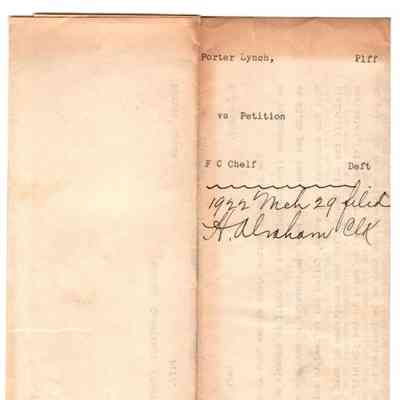 Porter Lynch, Plff
vs Petition
F C Chelf Deft
1922 Mch 29 filed
H. Abraham Clk